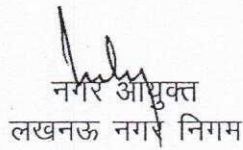 नगर आयुक्त
लखनऊ नगर निगम